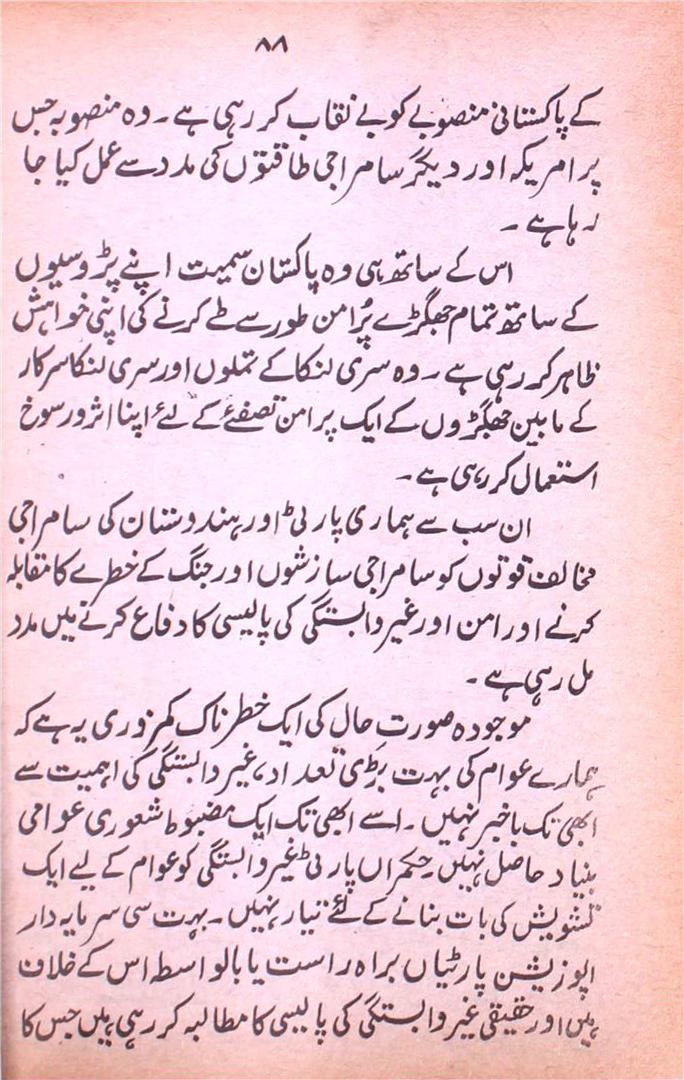 ۸۸
کے پاکستانی منصوبے کو بے نقاب کر رہی ہے۔ وہ منصوبہ جس
پر امریکہ اور دیگر سامراجی طاقتوں کی مدد سے عمل کیا جا
رہا ہے۔
اس کے ساتھ ہی وہ پاکستان سمیت اپنے پڑوسیوں
کے ساتھ تمام جھگڑے پُرامن طور سے طے کرنے کی اپنی خواہش
ظاہر کر رہی ہے۔ وہ سری لنکا کے تملوں اور سری لنکا سرکار
کے مابین جھگڑوں کے ایک پرامن تصفئے کے لئے اپنا اثر و رسوخ
استعمال کر رہی ہے۔
ان سب سے ہماری پارٹی اور ہندوستان کی سامراجی
مخالف قوتوں کو سامراجی سازشوں اور جنگ کے خطرے کا مقابلہ
کرنے اور امن اور غیر وابستگی کی پالیسی کا دفاع کرنے میں مدد
مل رہی ہے۔
موجودہ صورتِ حال کی ایک خطرناک کمزوری یہ ہے کہ
ہمارے عوام کی بہت بڑی تعداد، غیر وابستگی کی اہمیت سے
ابھی تک باخبر نہیں۔ اسے ابھی تک ایک مضبوط شعوری عوامی
بنیاد حاصل نہیں۔ حکمراں پارٹی غیر وابستگی کو عوام کے لیے ایک
تشویش کی بات بنانے کے لئے تیار نہیں۔ بہت سی سرمایہ دار
اپوزیشن پارٹیاں براہ راست یا بالواسطہ اس کے خلاف
ہیں اور حقیقی غیر وابستگی کی پالیسی کا مطالبہ کر رہی ہیں جس کا